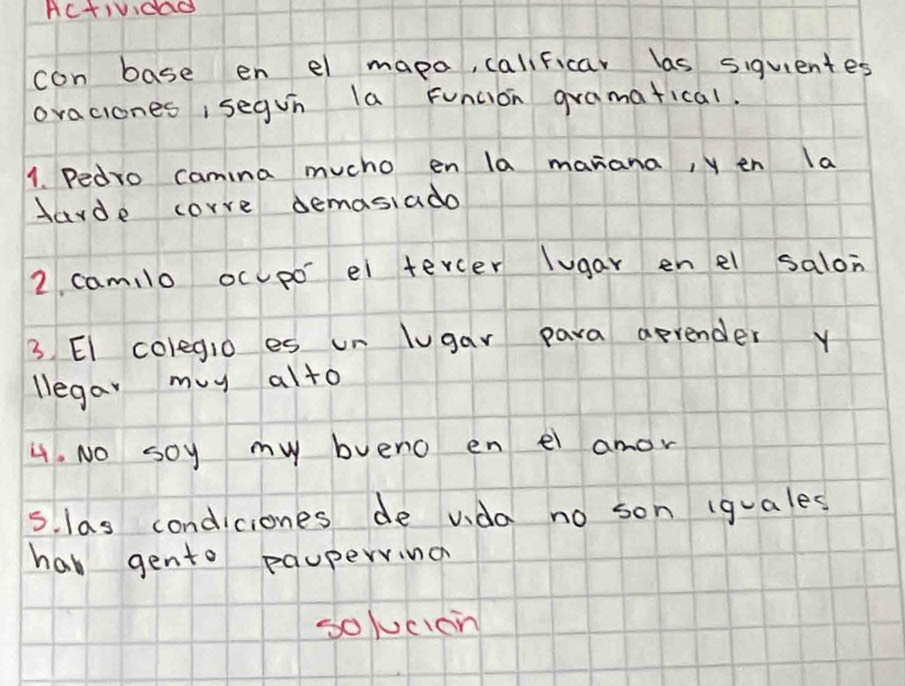 Actividad
con base en el mapa, calificar las siguientes
oraciones, según la función gramatical.
1. Pedro camina mucho en la mañana, y en la
tarde corre demasiado
2. camilo ocupó el tercer lugar en el salón
3. El colegio es un lugar para aprender y
llegar muy alto
4. No soy muy bueno en el amor
5. las condiciones de vida no son iguales
hay gente pauperrina
solución